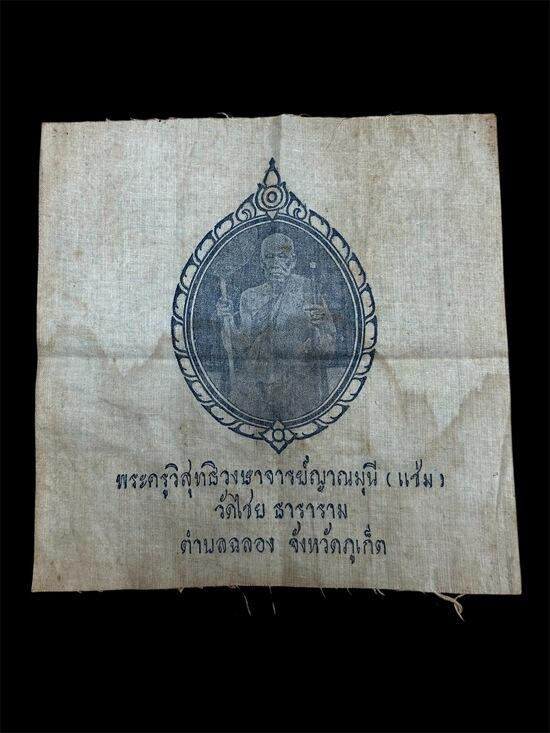 พระครูวิสุทธิวงษาจารย์ญาณมุนี (แช่ม)
วัดไชย ธาราราม
ตำบลฉลอง จังหวัดภูเก็ต